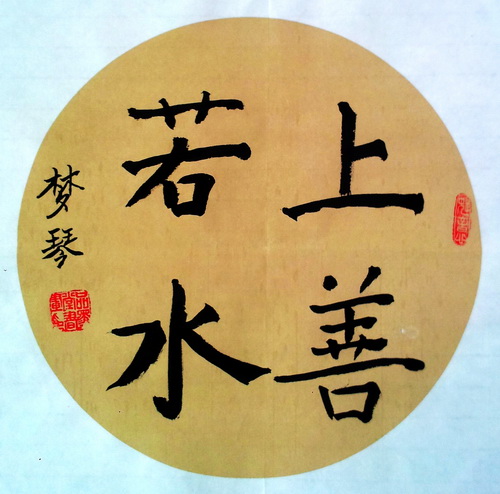 上善
若水
梦琴